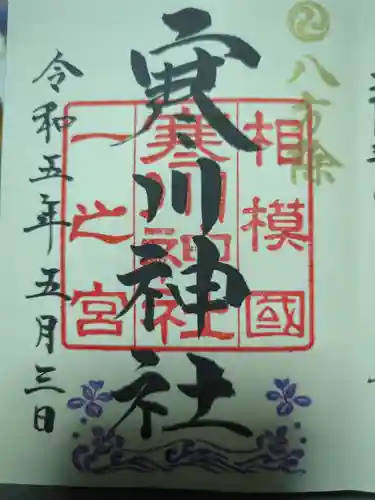 八方除
相模國
寒川神社
一之宮
寒川神社
令和五年五月三日